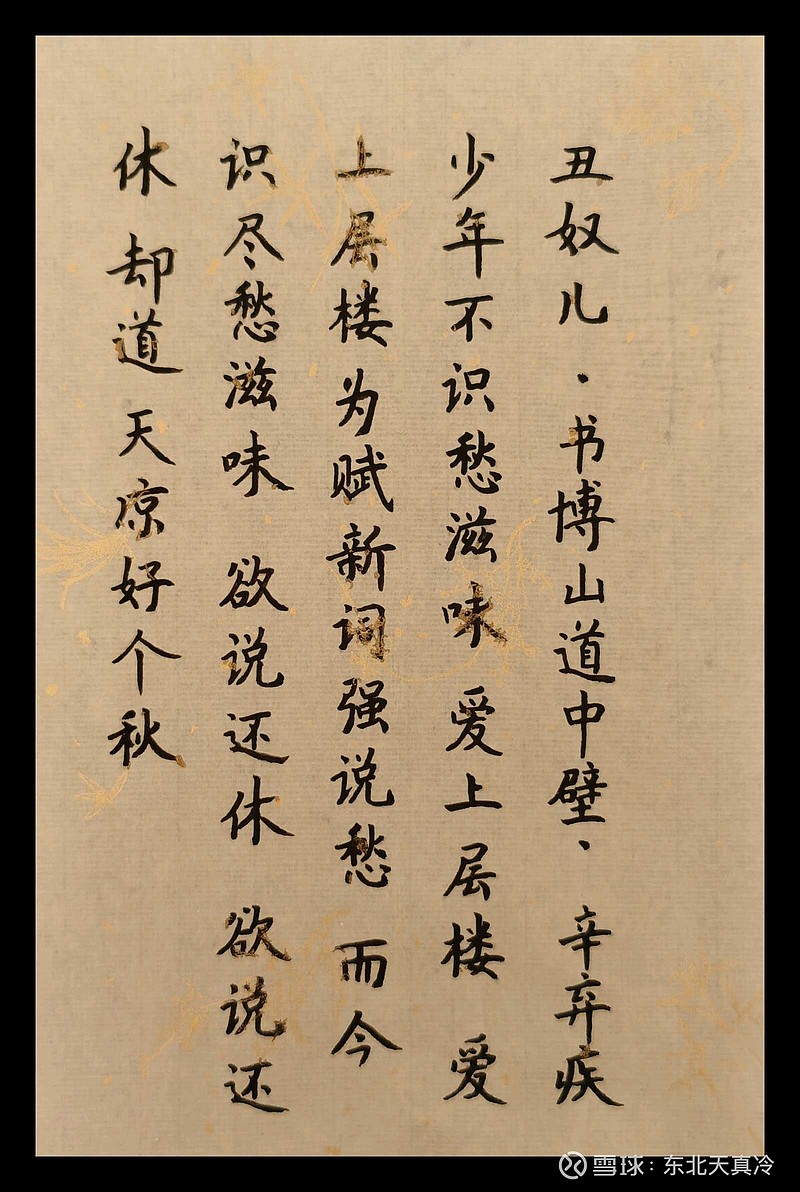 丑奴儿·书博山道中壁·辛弃疾
少年不识愁滋味 爱上层楼 爱
上层楼为赋新词强说愁 而今
识尽愁滋味 欲说还休 欲说还
休 却道 天凉好个秋
雪球：东北天真冷